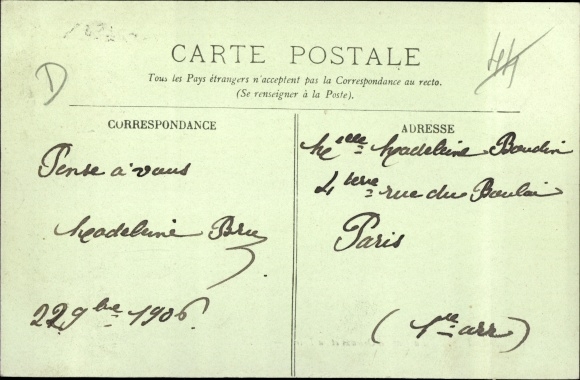 D
44
CARTE POSTALE
Tous les Pays étrangers n'acceptent pas la Correspondance au recto.
(Se renseigner à la Poste).
CORRESPONDANCE
Pense à vous
Madeleine Bru
22 9bre 1906
ADRESSE
Melle Madeleine Boudin
4 ter rue du Bouloi
Paris
(1er arr)